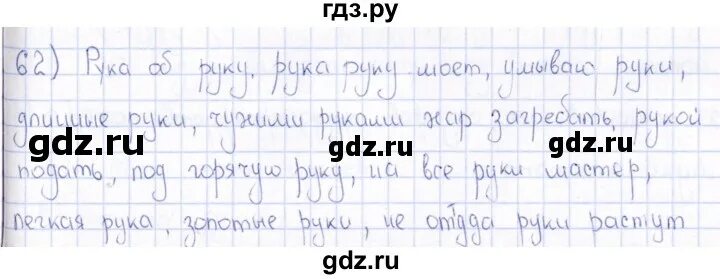 гдз.ру
62) Рука об руку, рука руку моет, умываю руки,
длинные руки, чужими руками жар загребать, рукой
подать, под горячую руку, на все руки мастер,
легкая рука, золотые руки, не оттуда руки растут
gdz.ru gdz.ru
gdz.ru gdz.ru
gdz.ru gdz.ru